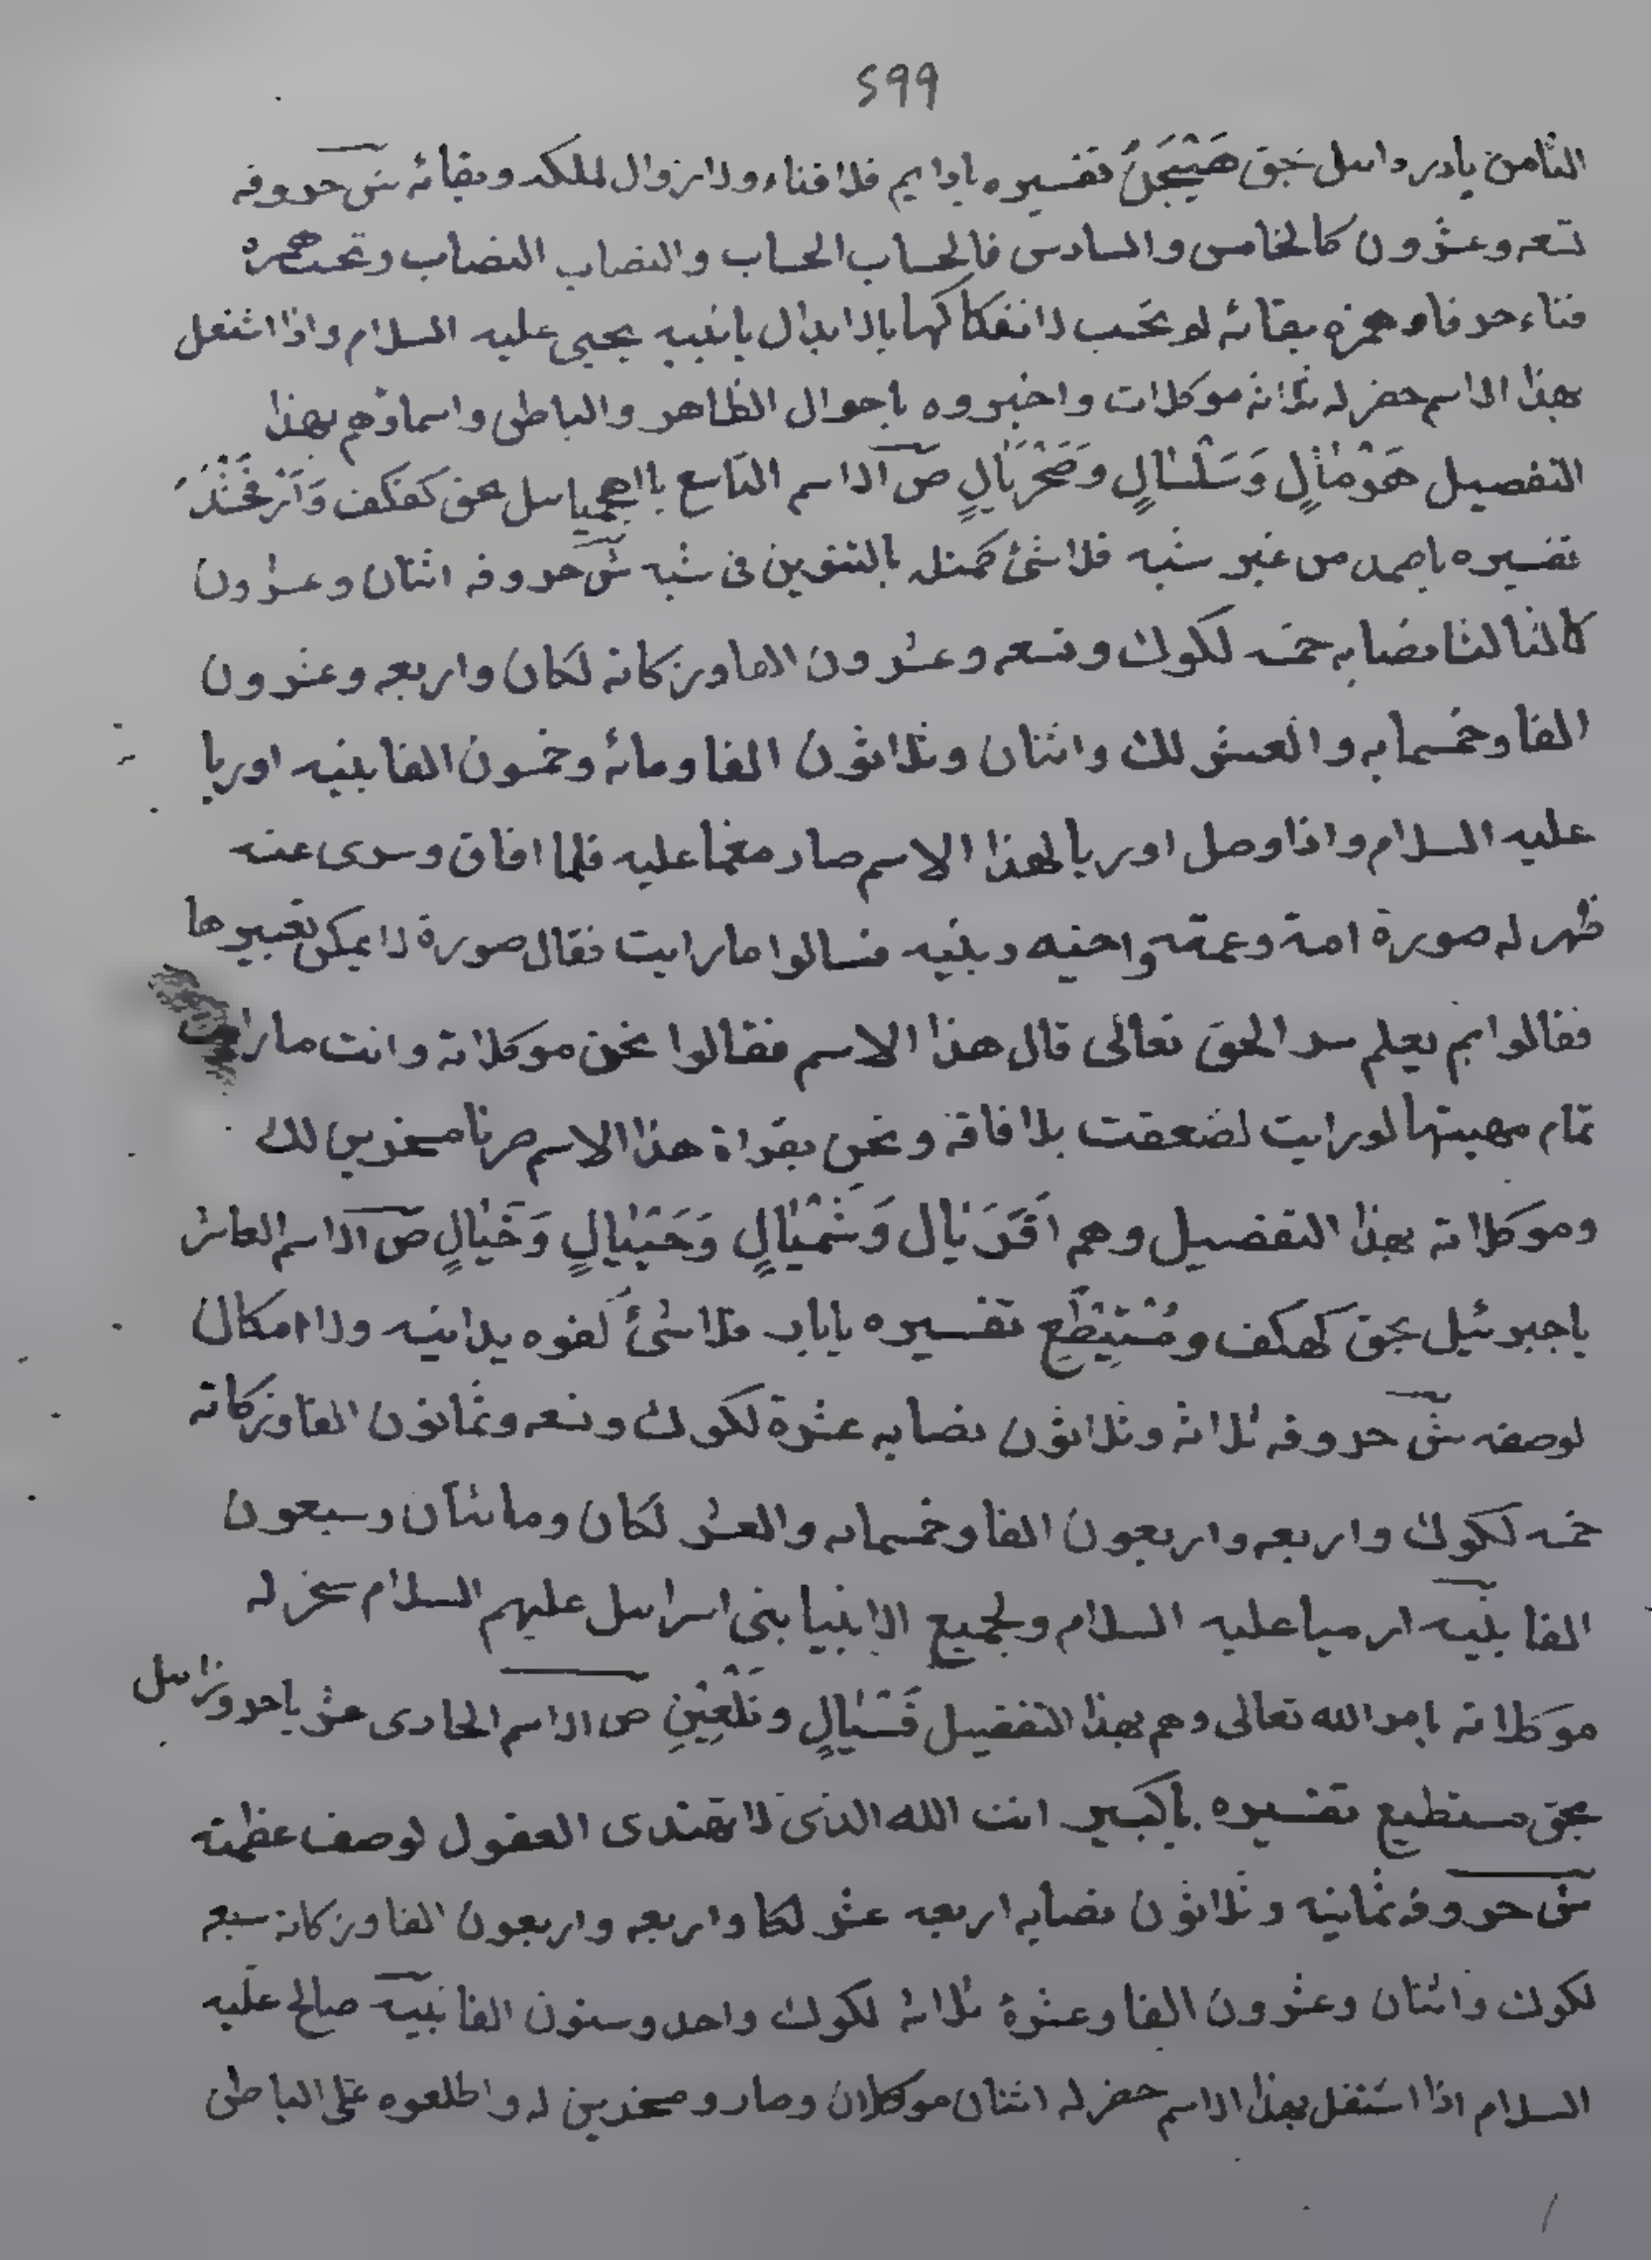 599
الثامن يادرداىىل بحق هَيْبَجَنٌ تفسيره يادايم فلا فناء ولا زوال لملكه وبقائه ش حروفه
تسعه وعشرون كالخامس والسادس فالحساب الحساب والنصاب النصاب وتحت همزه
فناء حرفا وهمزه بقائه لو تحسب لانفكاكها بالابدال بانبيه يحيى عليه السلام واذا اشتغل
بهذا الاسم حضر له ثلاثه موكلات واخبروه باحوال الظاهر والباطن واسماؤهم بهذا
التفصيل هَوْمَالٍ وَسَلْسَالٍ وَصَحْرَيَالٍ ص الاسم التاسع بحق كفكف
تفسيره ياصمد من غير شبه فلا شئ كمثله بالتنوين فى شبه ش حروفه اثنان وعشرون
كالثالث نصابه خمسه لكوك وتسعه وعشرون الفا وزكاته لكان واربعه وعشرون
الفا وخمسمايه والعشر لك واثنان وثلاثون الفا ومائه وخمسون الفا بنبيه اوريا
عليه السلام واذا وصل اوريا لهذا الاسم صار مغما عليه فلما افاق وسرى عنه
ظهر له صورة امة وعمته واخيه وبنيه فسالوا ما رايت فقال صورة لا يمكن تعبيرها
فقالوا بم يعلم سر الحق تعالى قال هذا الاسم فقالوا نحن موكلاته وانت ما رايت
تمام مهيبتها لو رايت لضعقت بلا افاقة ونحن بقراة هذا الاسم صرنا مسخرين لك
وموكلاته بهذا التفصيل وهم اَقْرَيَال وَشَمْيَالٍ وَحَبْيَالٍ وَخَيَالٍ ص الاسم العاشر
ياجبرئيل بحق كهكف ومُسْتَيْطَعٍ تفسيره يابار فلا شئ كفوه يدانيه ولا امكان
لوصفه ش حروفه ثلاثه وثلاثون نصابه عشرة لكوك وتسعه وثمانون الفا وزكاته
خمسه لكوك واربعه واربعون الفا وخمسمايه والعشر لكان ومائتان وسبعون
الفا بنبيه ارميا عليه السلام ولجميع الانبيا بنى اسرايل عليهم السلام سخر له
موكلاته بامر الله تعالى وهم بهذا التفضيل قَسْيَالٍ وتَلْعِيْنِ ص الاسم الحادى عشر ياحروزايىل
بحق مستطيع تفسيره ياكبير انت الله الذى لا تهتدى العقول لوصف عظمته
ش حروفه ثمانيه وثلاثون نصابه اربعه عشر لكا واربعه واربعون الفا وزكاته سبعه
لكوك واثنان وعشرون الفا وعشرة ثلاثه لكوك واحد وستون الفا بنبيه صالح عليه
السلام اذا اشتغل بهذا الاسم حضر له اثنان موكلان وصارو مسخرين له واطلعوه على الباطن